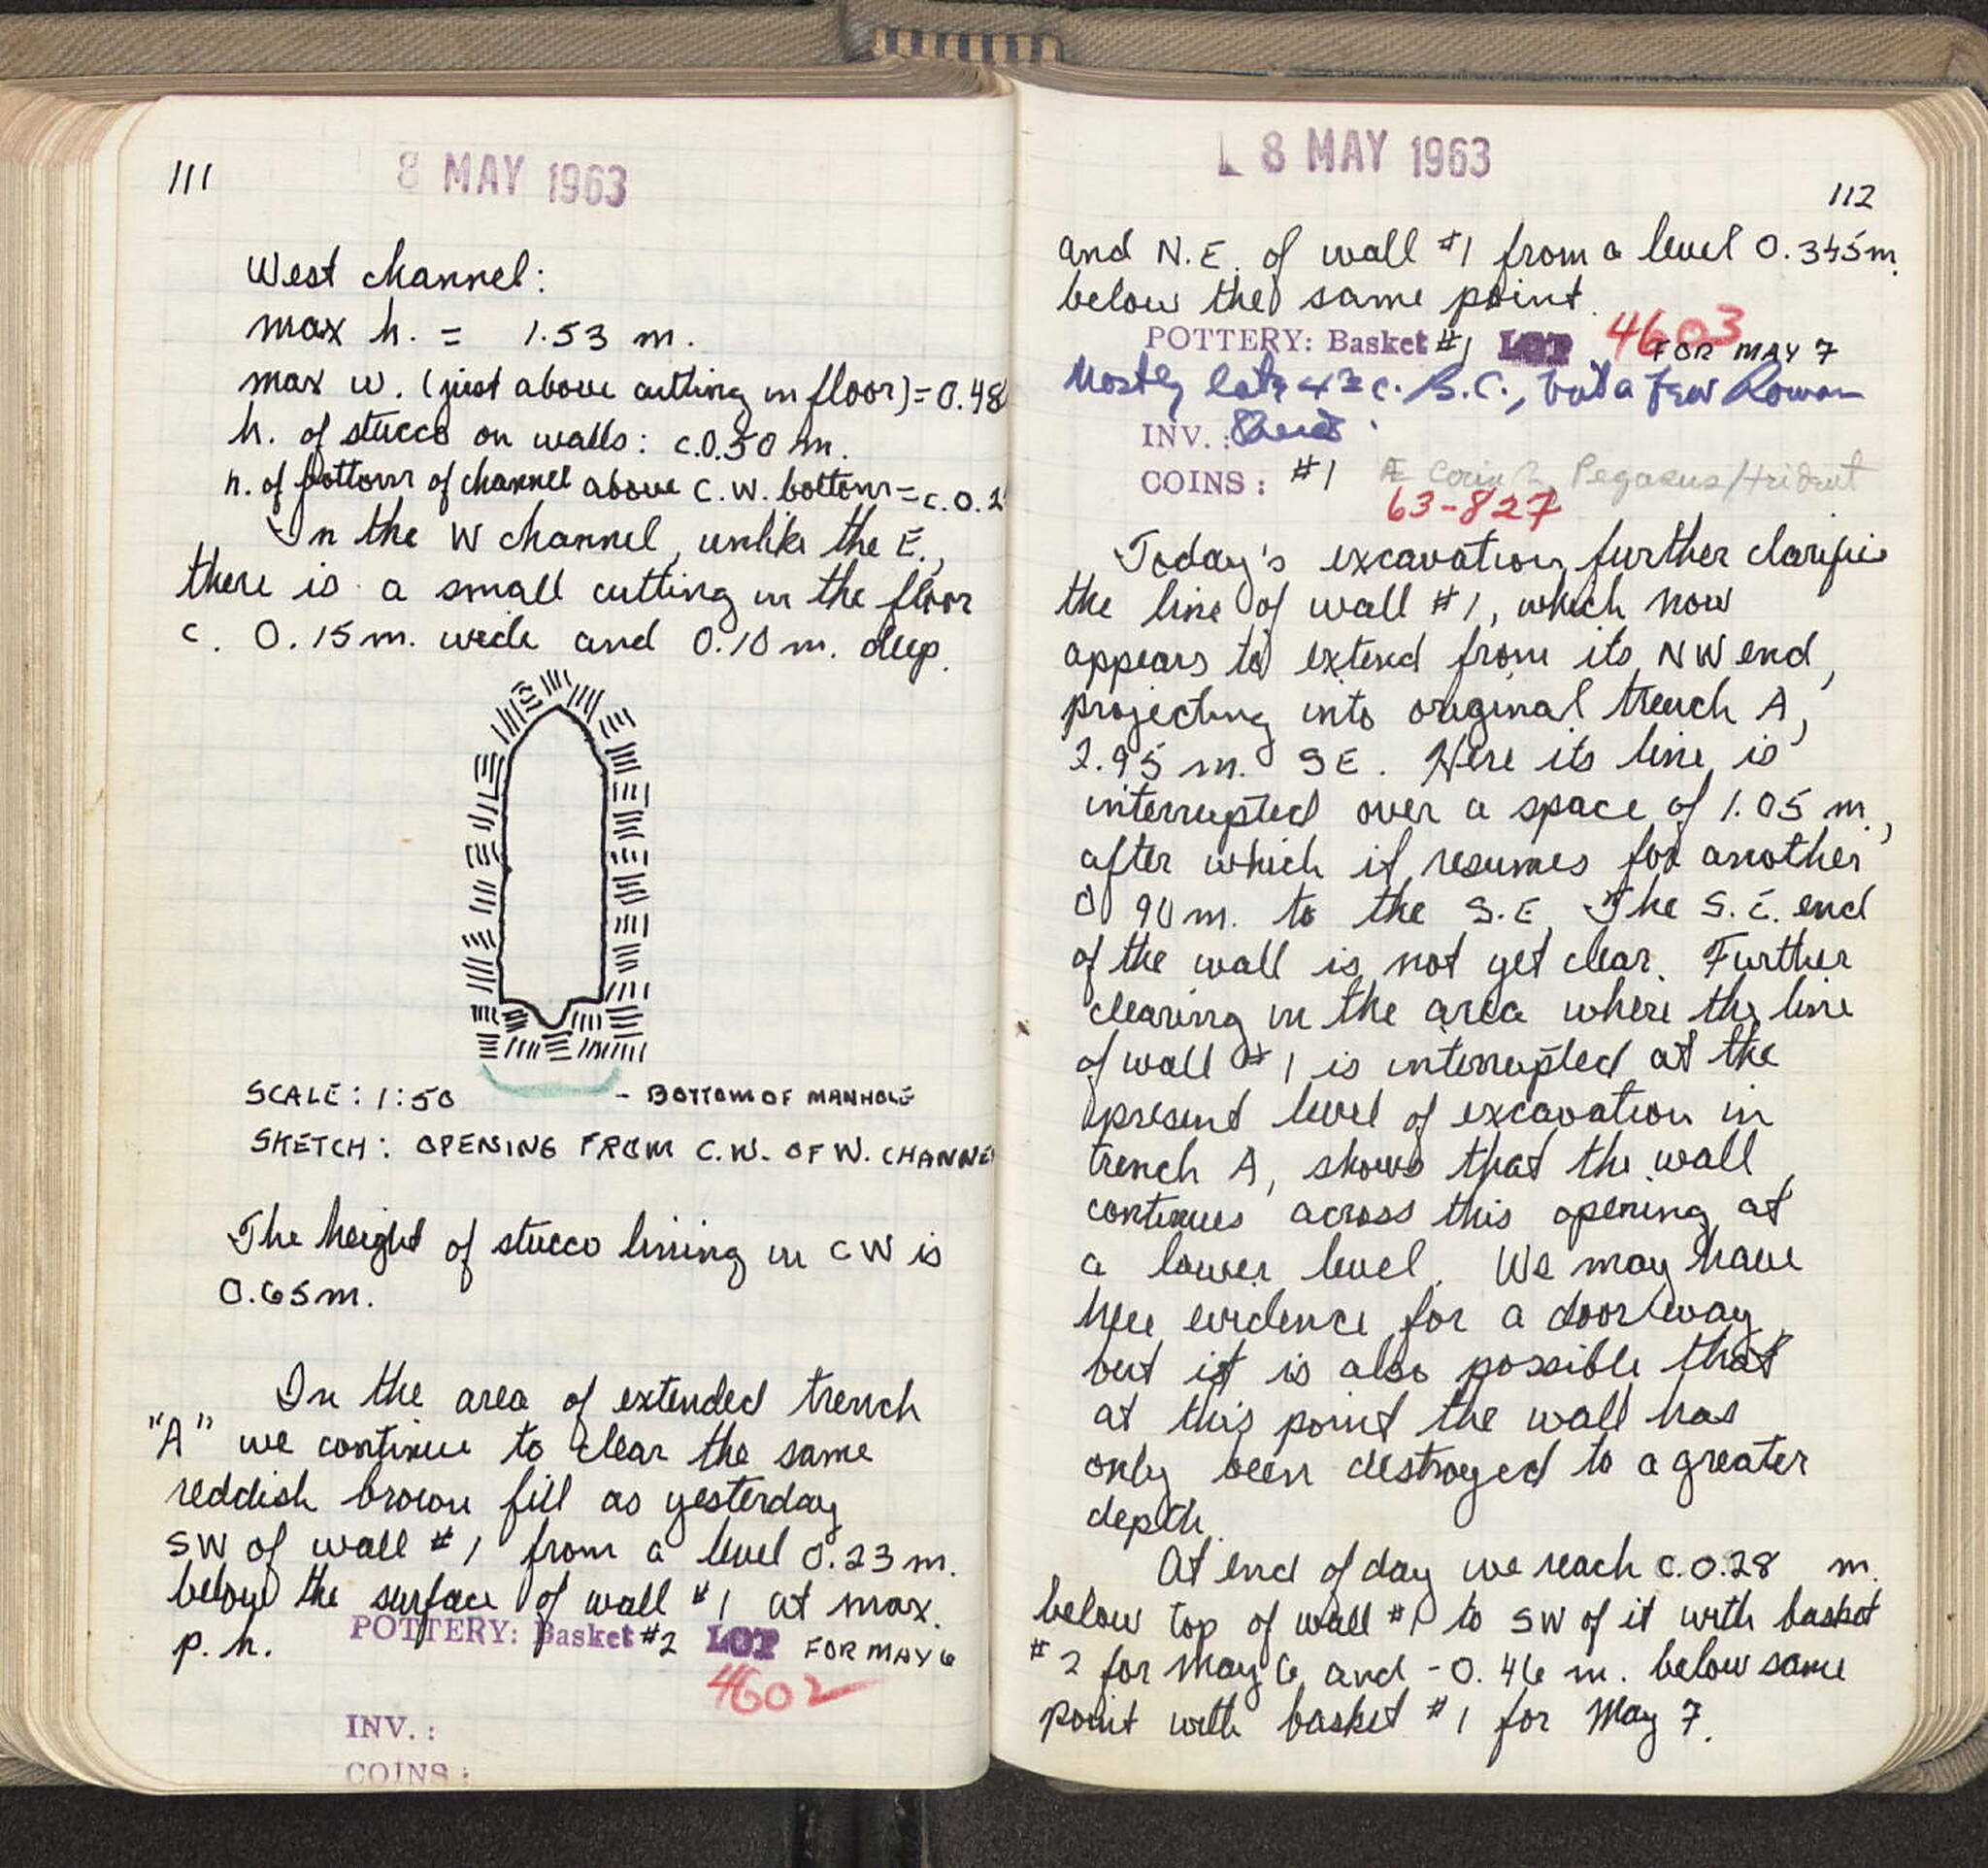 111
8 MAY 1963
West channel:
max h. = 1.53 m.
max w. (just above cutting in floor) = 0.48
h. of stucco on walls: c.0.50 m.
h. of bottom of channel above C.W. bottom = c.0.2
In the W channel, unlike the E.,
there is a small cutting in the floor
c. 0.15 m. wide and 0.10 m. deep.
SCALE: 1:50 - BOTTOM OF MANHOLE
SKETCH: OPENING FROM C.W. OF W. CHANNE
The height of stucco lining in CW is
0.65m.
In the area of extended trench
"A" we continue to clear the same
reddish brown fill as yesterday
SW of wall #1 from a level 0.23 m.
below the surface of wall #1 at max.
p.h.
POTTERY: Basket #2 LOT FOR MAY 6
4602
INV.:
COINS:
8 MAY 1963
112
and N.E. of wall #1 from a level 0.345m.
below the same point.
POTTERY: Basket #1 LOT 4603 FOR MAY 7
Mostly late 4th c. B.C., but a few Roman
INV.: Sherds.
COINS: #1 Æ Corinth, Pegasus/trident
63-827
Today's excavation further clarifies
the line of wall #1, which now
appears to extend from its NW end,
projecting into original trench A,
2.95 m. SE. Here its line is
interrupted over a space of 1.05 m.,
after which it resumes for another
0.90m. to the S.E. The S.E. end
of the wall is not yet clear. Further
clearing in the area where the line
of wall #1 is interrupted at the
present level of excavation in
trench A, shows that the wall
continues across this opening at
a lower level. We may have
here evidence for a doorway
but it is also possible that
at this point the wall has
only been destroyed to a greater
depth.
At end of day we reach c.0.28 m.
below top of wall #1 to SW of it with basket
#2 for May 6 and -0.46 m. below same
point with basket #1 for May 7.